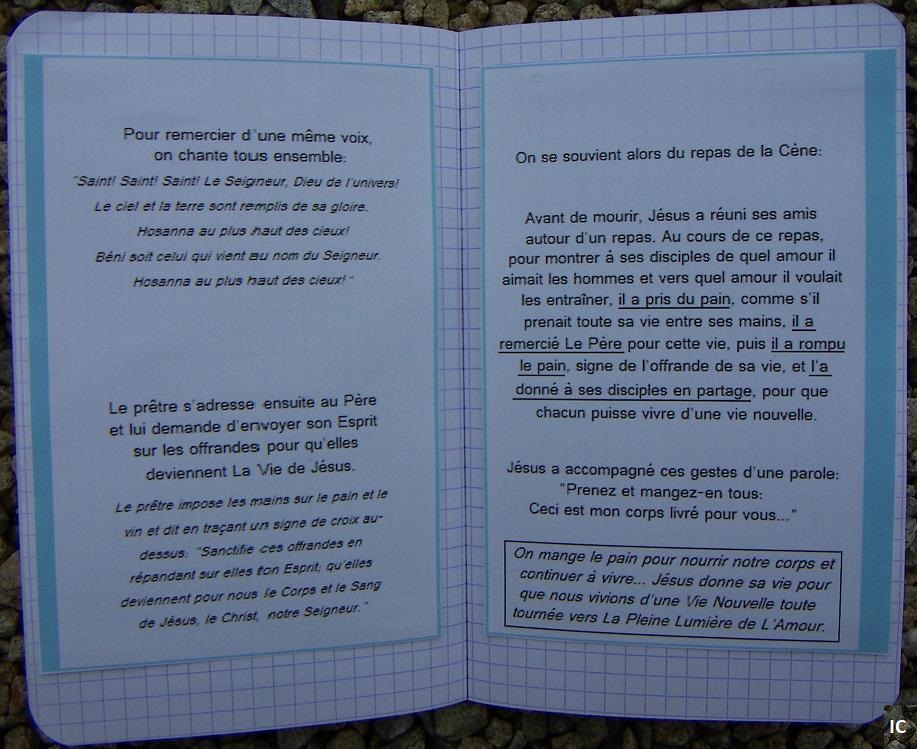 Pour remercier d'une même voix,
on chante tous ensemble:
"Saint! Saint! Saint! Le Seigneur, Dieu de l'univers!
Le ciel et la terre sont remplis de sa gloire.
Hosanna au plus haut des cieux!
Béni soit celui qui vient au nom du Seigneur.
Hosanna au plus haut des cieux!"
Le prêtre s'adresse ensuite au Père
et lui demande d'envoyer son Esprit
sur les offrandes pour qu'elles
deviennent La Vie de Jésus.
Le prêtre impose les mains sur le pain et le
vin et dit en traçant un signe de croix au-
dessus: "Sanctifie ces offrandes en
répandant sur elles ton Esprit; qu'elles
deviennent pour nous le Corps et le Sang
de Jésus, le Christ, notre Seigneur."
On se souvient alors du repas de la Cène:
Avant de mourir, Jésus a réuni ses amis
autour d'un repas. Au cours de ce repas,
pour montrer à ses disciples de quel amour il
aimait les hommes et vers quel amour il voulait
les entraîner, il a pris du pain, comme s'il
prenait toute sa vie entre ses mains, il a
remercié Le Père pour cette vie, puis il a rompu
le pain, signe de l'offrande de sa vie, et l'a
donné à ses disciples en partage, pour que
chacun puisse vivre d'une vie nouvelle.
Jésus a accompagné ces gestes d'une parole:
"Prenez et mangez-en tous:
Ceci est mon corps livré pour vous..."
On mange le pain pour nourrir notre corps et
continuer à vivre... Jésus donne sa vie pour
que nous vivions d'une Vie Nouvelle toute
tournée vers La Pleine Lumière de L'Amour.
IC